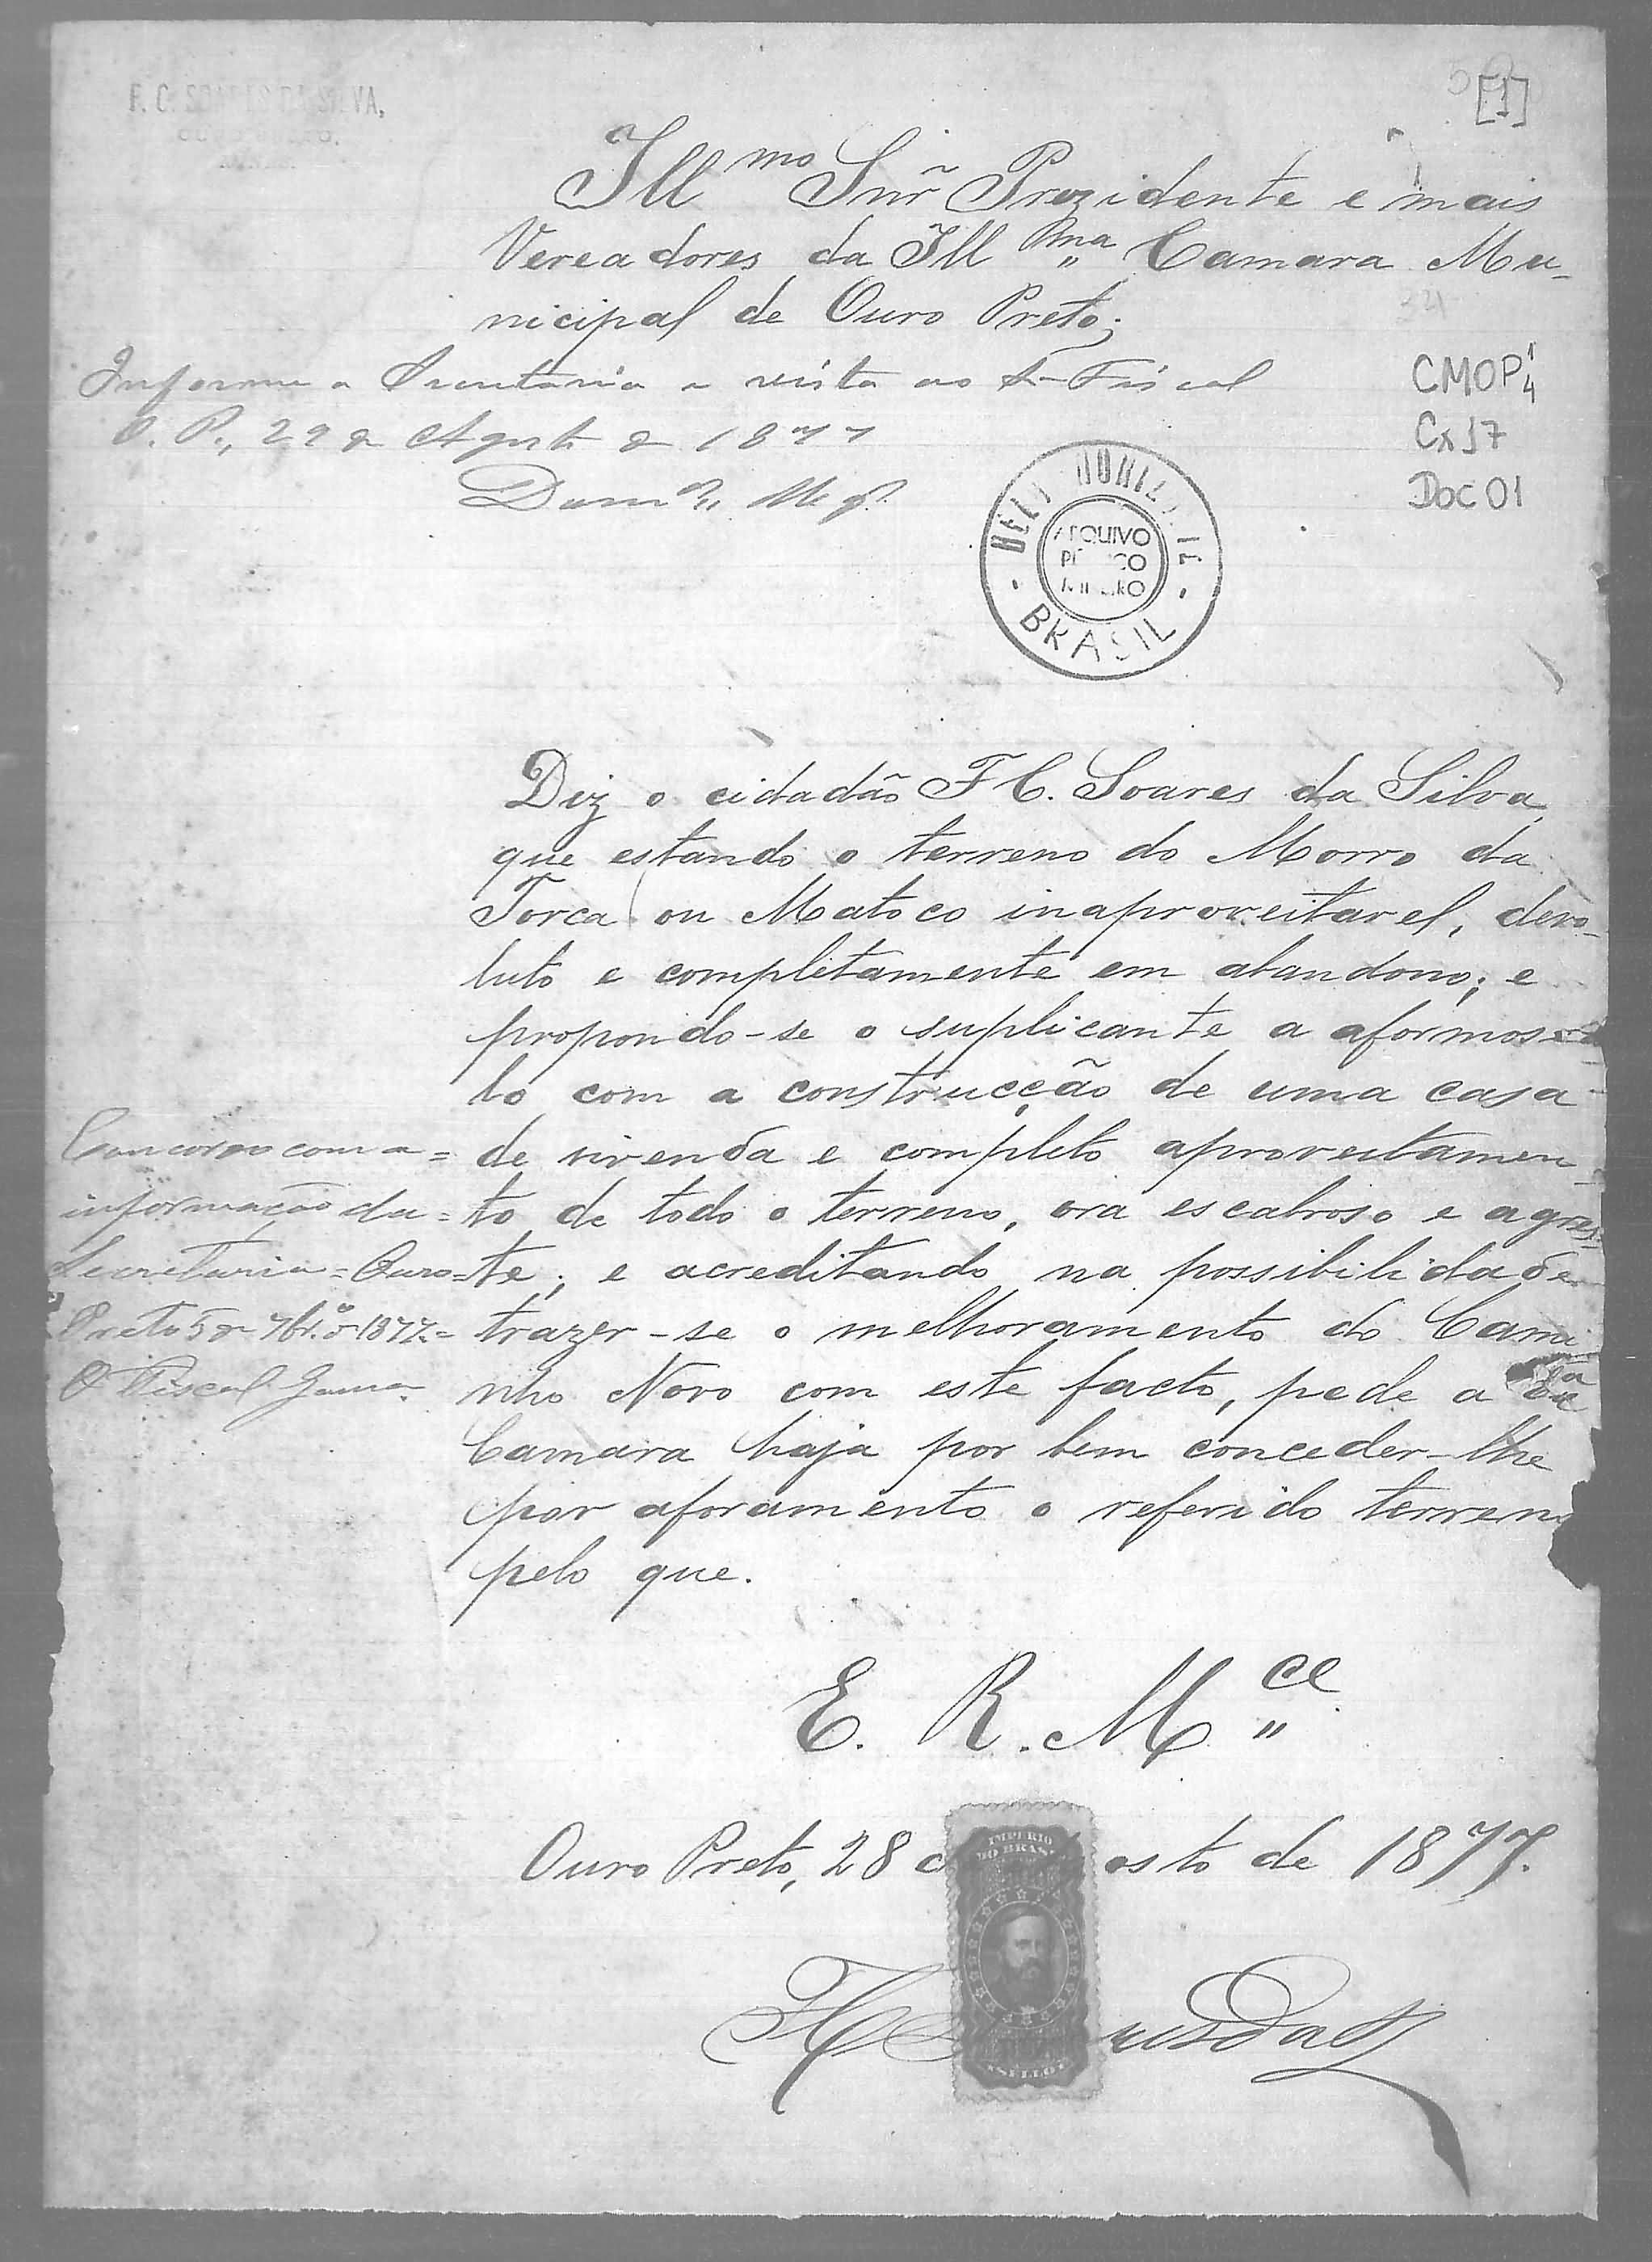 F. C. SOARES DA SILVA,
OURO PRETO.
[1]
Ill mo Snr Prezidente e mais
Vereadores da Ill ma Camara Mu-
nicipal de Ouro Preto;
Informe a Secretaria e vista ao Fiscal
O. P., 29 de Agosto de 1877
CMOP 1/4
Cx 17
Doc 01
BELO HORIZONTE
ARQUIVO
PÚBLICO
MINEIRO
BRASIL
Diz o cidadão F C. Soares da Silva,
que estando o terreno do Morro da
Forca ou Matoco inaproveitavel, devo-
luto e completamente em abandono; e
propondo-se o suplicante a aformosea-
lo com a construcção de uma casa
de vivenda e completo aproveitamen-
to de todo o terreno, ora escabroso e agres-
te; e acreditando na possibilidade
trazer-se o melhoramento do Cami
nho Novo com este facto, pede a
Camara haja por bem conceder-lhe
por aforamento o referido terreno
pelo que.
Concordo com a =
informação da =
Secretaria = Ouro =
Preto 5 de 7br.o de 1877. =
O Fiscal Gama.
E. R. M ce
Ouro Preto, 28 osto de 1877.
IMPERIO
DO BRASIL
SELLO